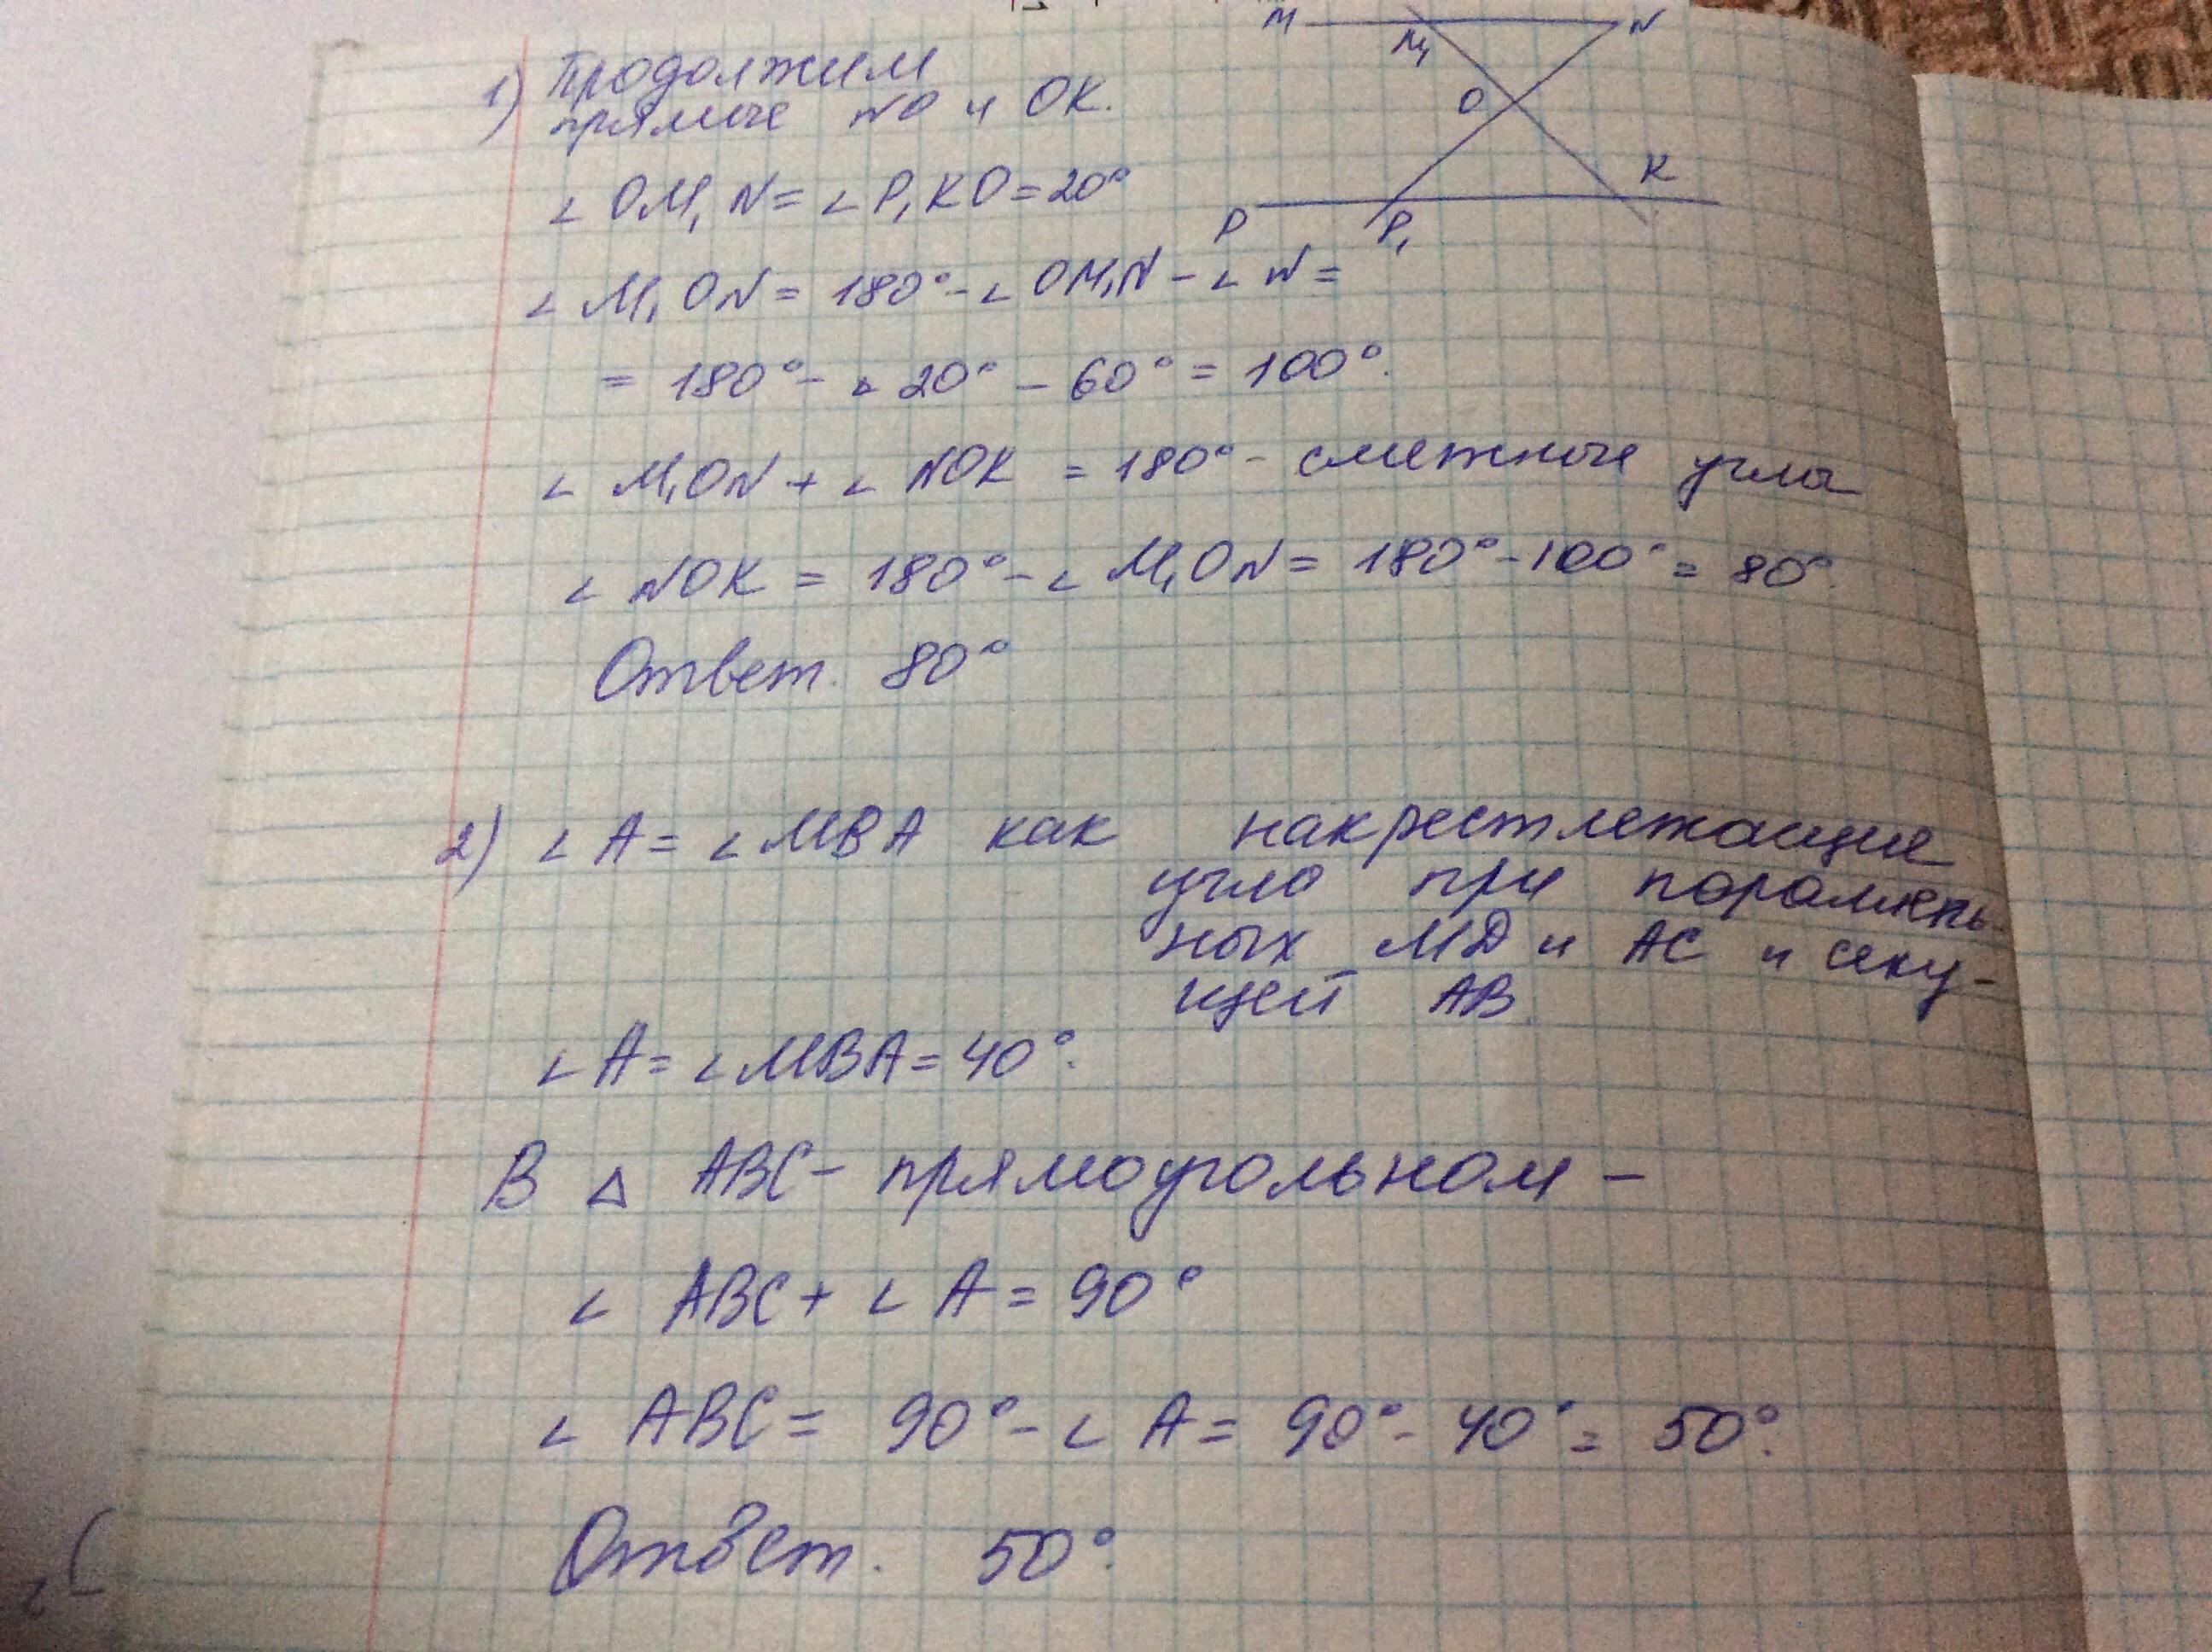 M N
M₁
O
K
P P₁
1) Продолжим
прямые NO и OK.
∠ OM₁N = ∠ P₁KO = 20°
∠ M₁ON = 180° - ∠ OM₁N - ∠ N =
= 180° - 20° - 60° = 100°.
∠ M₁ON + ∠ NOK = 180° - смежные углы
∠ NOK = 180° - ∠ M₁ON = 180° - 100° = 80°.
Ответ. 80°
2) ∠ A = ∠ MBA как накрестлежащие
углы при параллель-
ных MD и AC и секу-
щей AB.
∠ A = ∠ MBA = 40°.
В △ ABC - прямоугольном -
∠ ABC + ∠ A = 90°
∠ ABC = 90° - ∠ A = 90° - 40° = 50°.
Ответ. 50°.